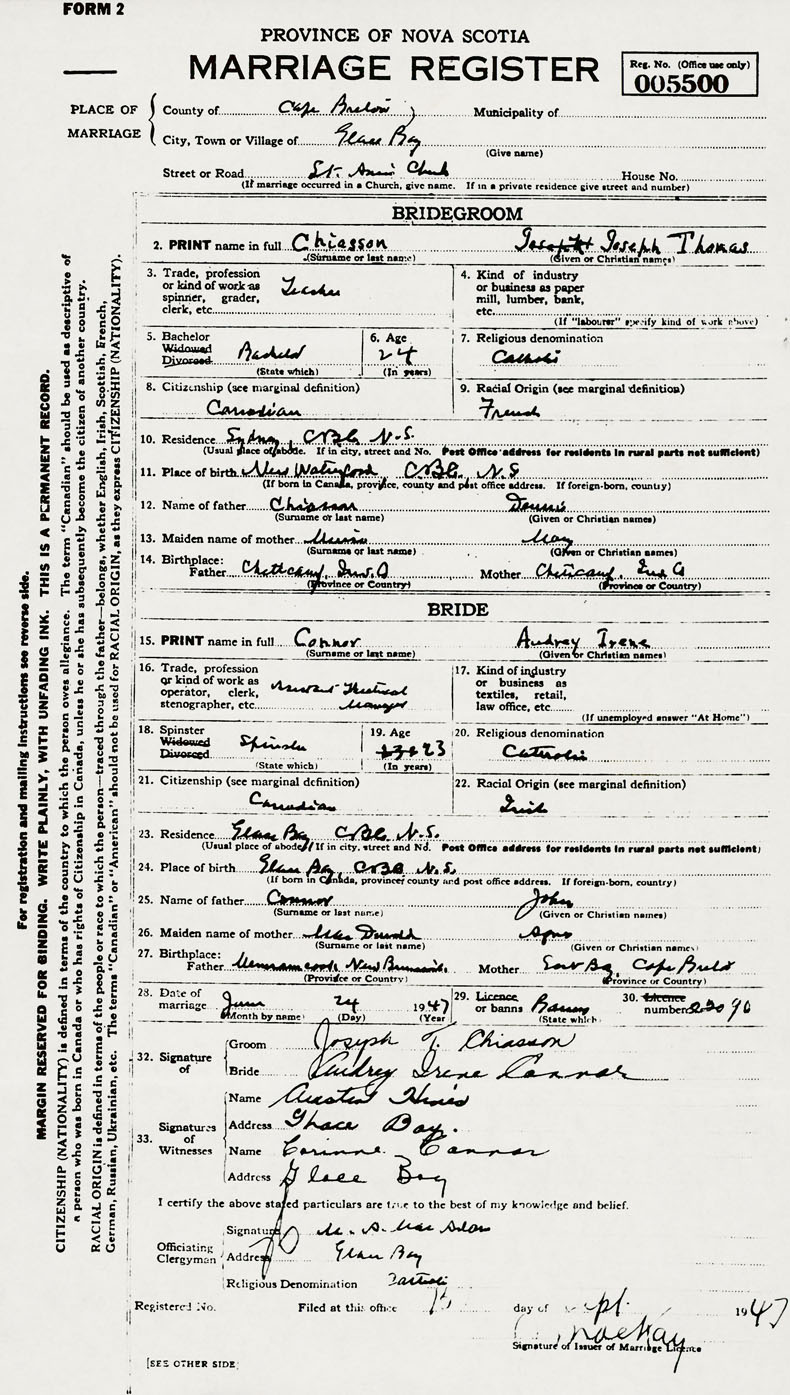 FORM 2
PROVINCE OF NOVA SCOTIA
MARRIAGE REGISTER
Reg. No. (Office use only)
005500
PLACE OF MARRIAGE
County of Cape Breton Municipality of
City, Town or Village of Glace Bay
(Give name)
Street or Road St. Anns Church House No.
(If marriage occurred in a Church, give name. If in a private residence give street and number)
BRIDEGROOM
2. PRINT name in full Chiasson Joseph Thomas
(Surname or last name) (Given or Christian names)
3. Trade, profession or kind of work as spinner, grader, clerk, etc. Teacher
4. Kind of industry or business as paper mill, lumber, bank, etc.
(If "labourer" specify kind of work above)
5. Bachelor Widowed Divorced Bachelor
(State which)
6. Age 24
(In years)
7. Religious denomination
Catholic
8. Citizenship (see marginal definition)
Canadian
9. Racial Origin (see marginal definition)
French
10. Residence Sydney, C.B. Co. N.S.
(Usual place of abode. If in city, street and No. Post Office address for residents in rural parts not sufficient)
11. Place of birth New Waterford C.B. Co. N.S
(If born in Canada, province, county and post office address. If foreign-born, country)
12. Name of father Chiasson Dennis
(Surname or last name) (Given or Christian names)
13. Maiden name of mother May
(Surname or last name) (Given or Christian names)
14. Birthplace: Father Cheticamp, Mother Cheticamp,
(Province or Country) (Province or Country)
BRIDE
15. PRINT name in full Connor Audrey Irene
(Surname or last name) (Given or Christian names)
16. Trade, profession or kind of work as operator, clerk, stenographer, etc. Manager
17. Kind of industry or business as textiles, retail, law office, etc.
(If unemployed answer "At Home")
18. Spinster Widowed Divorced Spinster
(State which)
19. Age 23
(In years)
20. Religious denomination
Catholic
21. Citizenship (see marginal definition)
Canadian
22. Racial Origin (see marginal definition)
Irish
23. Residence Glace Bay C.B. Co. N.S.
(Usual place of abode. If in city, street and No. Post Office address for residents in rural parts not sufficient)
24. Place of birth Glace Bay, C.B.Co N.S.
(If born in Canada, province, county and post office address. If foreign-born, country)
25. Name of father Connor John
(Surname or last name) (Given or Christian names)
26. Maiden name of mother Mac Donald Agnes
(Surname or last name) (Given or Christian names)
27. Birthplace: Father Memramcook, New Brunswick Mother East Bay, Cape Breton
(Province or Country) (Province or Country)
28. Date of marriage June 24 1947
(Month by name) (Day) (Year)
29. Licence or banns Banns
(State which)
30. Licence number
32. Signature of
Groom Joseph T. Chiasson
Bride Audrey Irene Connor
33. Signatures of Witnesses
Name Austin
Address Glace Bay.
Name Corinne Connor
Address Glace Bay
I certify the above stated particulars are true to the best of my knowledge and belief.
Officiating Clergyman
Signature M. A. Mac Adam
Address Glace Bay
Religious Denomination Catholic
Registered No. Filed at this office day of Sept. 1947
MacKay
Signature of Issuer of Marriage Licence
[SEE OTHER SIDE]
For registration and mailing instructions see reverse side.
MARGIN RESERVED FOR BINDING. WRITE PLAINLY, WITH UNFADING INK. THIS IS A PERMANENT RECORD.
CITIZENSHIP (NATIONALITY) is defined in terms of the country to which the person owes allegiance. The term "Canadian" should be used as descriptive of
a person who was born in Canada or who has rights of Citizenship in Canada, unless he or she has subsequently become the citizen of another country.
RACIAL ORIGIN is defined in terms of the people or race to which the person—traced through the father—belongs, whether English, Irish, Scottish, French,
German, Russian, Ukrainian, etc. The terms "Canadian" or "American" should not be used for RACIAL ORIGIN, as they express CITIZENSHIP (NATIONALITY).